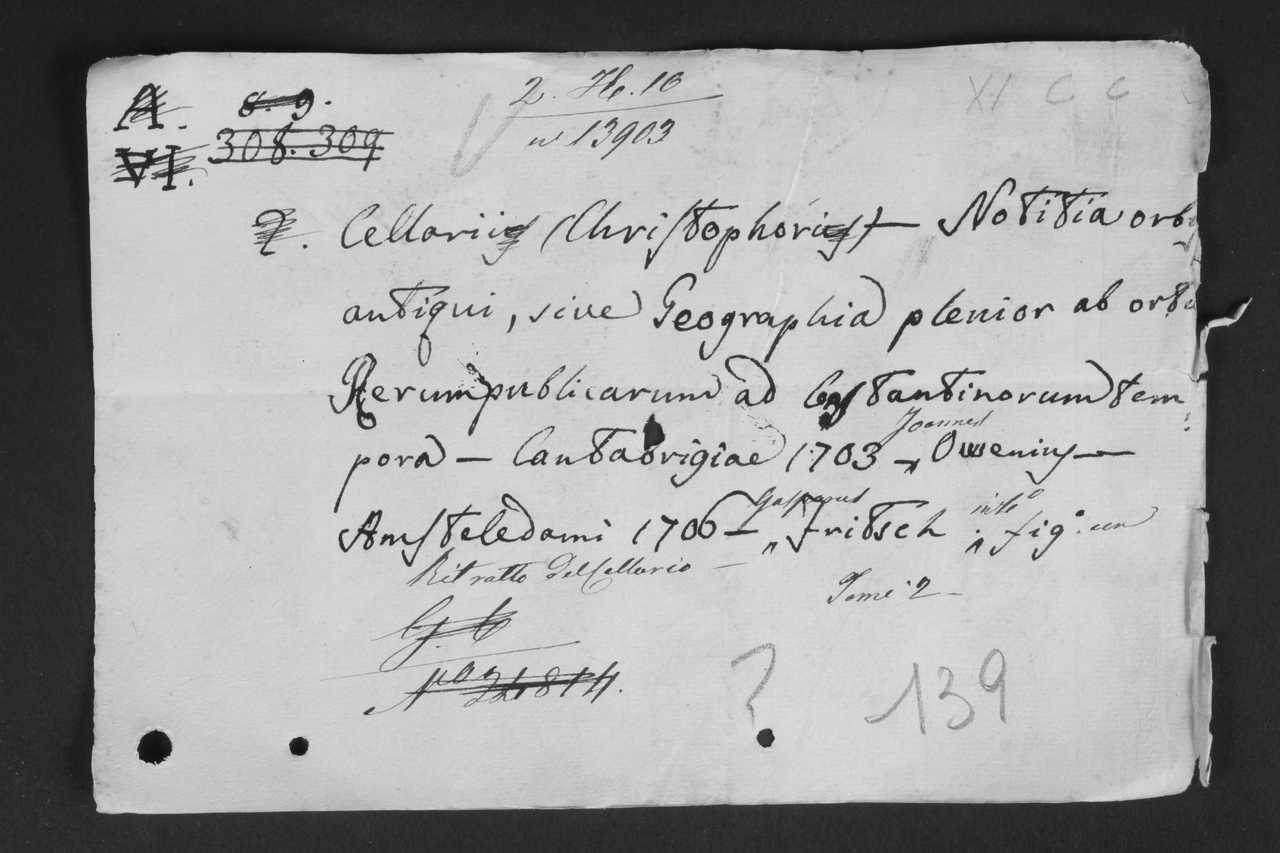 A. 8. 9. 2. H. 10 XI C C
VI. 308. 309 n 13903
2. Cellarii (Christophori) — Notitia orbis
antiqui, sive Geographia plenior ab ortu
Rerumpublicarum ad Constantinorum tem
Joannes
pora — Cantabrigiae 1703 — Owenius —
Gasparus in 4º
Amsteledami 1706 — Fritsch fig.º con
Ritratto del Cellario —
Tomi 2 —
G. C
Nº 21814.
? 139